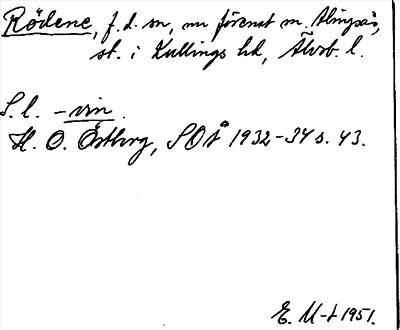 Rödene, f. d. sn, nu förenat m. Alingsås,
st. i Kullings hd, Älvsb. l.
S. l. -vin.
H. O. Östberg, SOÅ 1932-34 s. 43.
E. U-t 1951.